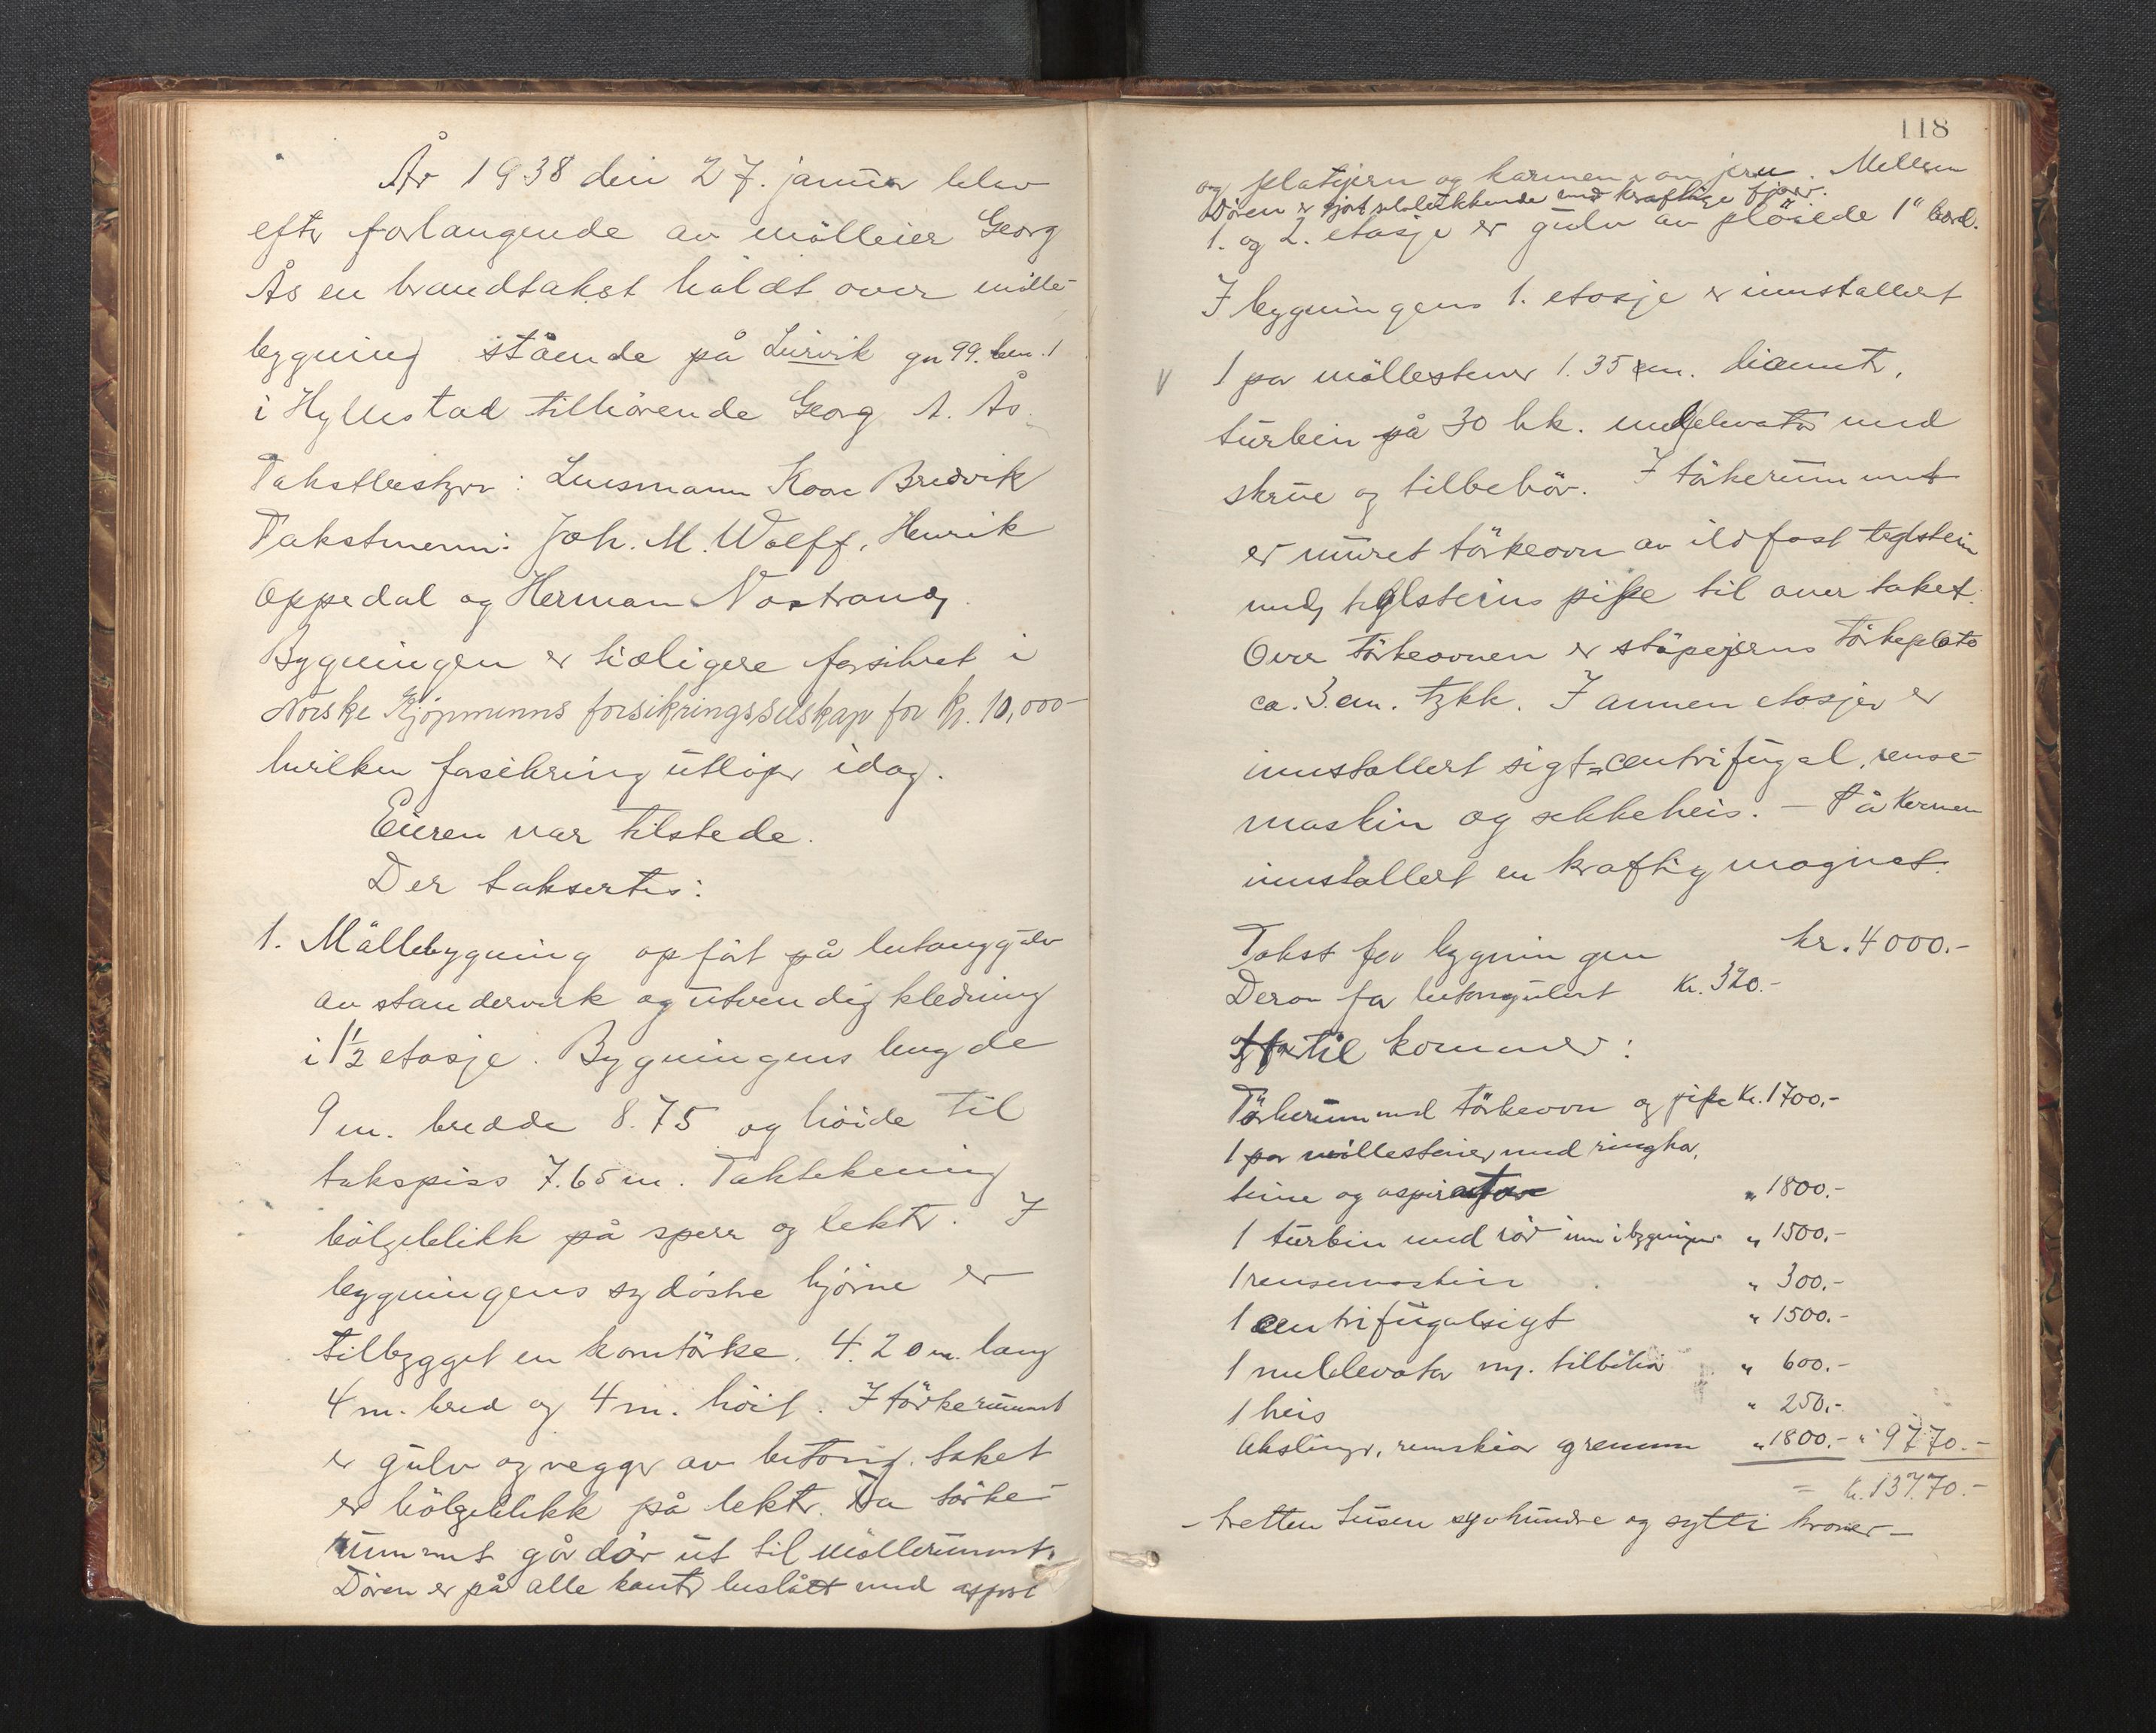 År 1938 den 27. januar blev
efter forlangende av mölleier Georg
Ås en brandtakst holdt over mölle-
bygning stående på Leirvik gn 99. bn. 1
i Hyllestad tilhörende Georg A. Ås.
Takstbestyrer: Lensmann Kore Bredvik
Takstmenn: Joh. M. Wolff, Henrik
Oppedal og Herman Nostrand.
Bygningen er tidligere forsikret i
Norske Kjöpmenns forsikringsselskap for kr. 10,000-
hvilken forsikring utlöper idag.
Eieren var tilstede.
Der taksertes:
1. Möllebygning opfört på betonggulv
av standerverk og utvendig kledning
i 1 1/2 etasje. Bygningens lengde
9 m. bredde 8.75 og höide til
takspiss 7.65 m. Taktekning
bölgeblikk på sperr og lekter. I
bygningens sydöstre hjörne er
tilbygget en korntörke. 4.20 m. lang
4 m. bred og 4 m. höit. I törkerummet
er gulv og vegger av betong. taket
er bölgeblikk på lekter. Fra törke-
rummet går dör ut til möllerummet.
Dören er på alle kanter beslått med
118
og platejern og karmen er av jern. Mellem
Dören er gjort selvlukkende med kraftige fjær.
1. og 2. etasje er gulv av plöiede 1" bord.
I bygningens 1. etasje er innstallert
1 par möllestener 1.35 m. diamtr,
turbin på 30 hk. melelevator med
skrue og tilbehör. I törkerummet
er muret törkeovn av ildfast teglstein
med teglsteins pipe til over taket.
Over törkeovnen er stöpejerns törkeplate
ca. 3 cm. tykk. I annen etasje er
innstallert sigt=centrifugal, rense-
maskin og sekkeheis. - På kvernen
innstallert en kraftig magnet.
Takst for bygningen kr. 4000.-
Derav for betonggulvet kr. 320.-
til kommer:
Törkerum med törkeovn og pipe Kr. 1700.-
1 par möllesteiner med ringkar,
teine og aspiratör " 1800.-
1 turbin med rör inn i bygningen " 1500.-
1 rensemaskin " 300.-
1 centrifugalsigt " 1500.-
1 melelevator m. tilbehör " 600.-
1 heis " 250.-
Akslinger, remskiver og remmer " 1800.- " 9770.-
= kr. 13770.-
- tretten tusen syvhundre og sytti kroner -